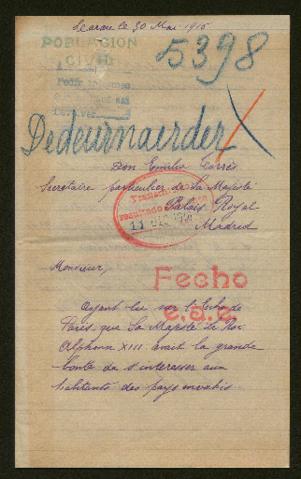 le 30 Mai 1916
POBLACION
CIVIL
5398
Dedeurnaerder
Don Emilio Torrès
Secrétaire particulier de Sa Majesté
Palais Royal
Madrid
11
Monsieur,
Fecho
Ayant lu sur l'Echo de
Paris que Sa Majesté Le Roi
Alphonse XIII avait la grande
bonté de s'interesser aux
habitants des pays envahis